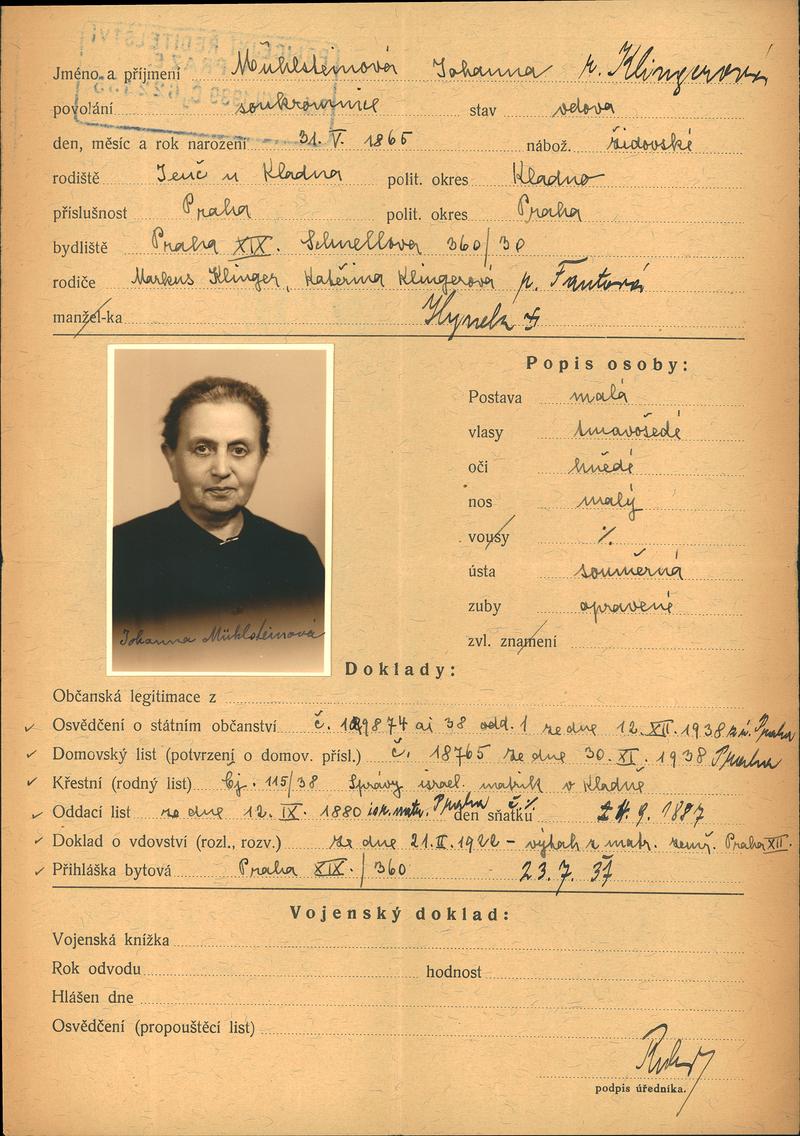 Jméno a příjmení Mühlsteinová Johanna r. Klingerová
povolání soukromnice stav vdova
den, měsíc a rok narození 31. V. 1865 nábož. židovské
rodiště Jenč u Kladna polit. okres Kladno
příslušnost Praha polit. okres Praha
bydliště Praha XIX. Schnellova 360/30
rodiče Markus Klinger, Kateřina Klingerová r. Fantová
manžel-ka Hynek
Popis osoby:
Postava malá
vlasy tmavošedé
oči hnědé
nos malý
vousy %
ústa souměrná
zuby opravené
zvl. znamení
Johanna Mühlsteinová
Doklady:
Občanská legitimace z
Osvědčení o státním občanství č. ai 38 odd. 1 ze dne 12. XII. 1938 Praha
Domovský list (potvrzení o domov. přísl.) č. 18765 ze dne 30. XI. 1938 Praha
Křestní (rodný list) Čj. 115/38 Správy israel. matrik v Kladně
Oddací list ze dne 12. IX. 1880 isr. matr. Praha č. % den sňatku 9. 1887
Doklad o vdovství (rozl., rozv.) ze dne 21. II. 1922 – výtah z matr. zemř. Praha XII.
Přihláška bytová Praha XIX./360 23. 7. 37
Vojenský doklad:
Vojenská knížka
Rok odvodu hodnost
Hlášen dne
Osvědčení (propouštěcí list)
podpis úředníka.